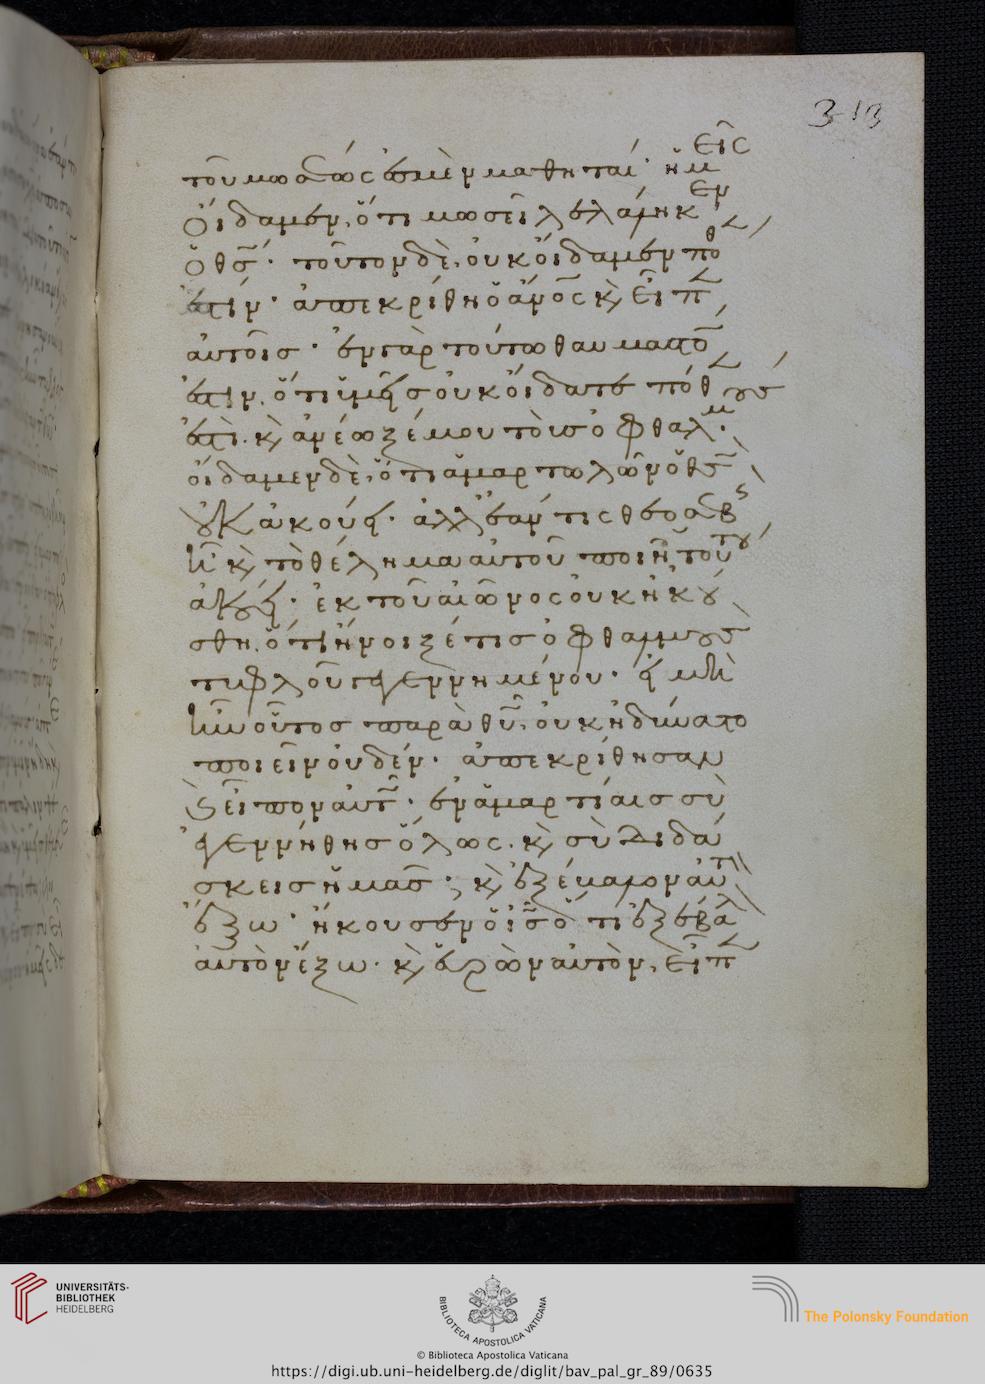 313
τοῦ μωσέως ἐσμὲν μαθηταί· ἡμεῖς
οἴδαμεν, ὅτι μωσεῖ λελάληκεν
ὁ θσ̅· τοῦτον δὲ, οὐκ οἴδαμεν πόθεν
ἐστίν· ἀπεκρίθη ὁ ἄνοσ κ̀ εἶπεν
αὐτοῖσ· ἐν γὰρ τούτω θαυμαστόν
ἐστιν, ὅτι ὑμεῖσ οὐκ οἴδατε πόθεν
ἐστὶ. κ̀ ἀνέωξέ μου τοὺσ ὀφθαλμ·
οἴδαμεν δὲ, ὅτι ἁμαρτωλῶν ὁ θσ̅
οὐκ ἀκούει· ἀλλ' ἐάν τις θεοσεβὴς
ἦ κ̀ τὸ θέλημα αὐτοῦ ποιῆ, τούτου
ἀκούει· ἐκ τοῦ αἰῶνος οὐκ ἠκού
σθη, ὅτι ἤνοιξέ τισ ὀφθαλμοὺσ
τυφλοῦ γεγεννημένου· εἰ μὴ
ἦν οὗτοσ παρὰ θυ̅, οὐκ ἠδύνατο
ποιεῖν οὐδέν· ἀπεκρίθησαν
κ̀ εἶπον αὐτῶ· ἐν ἁμαρτίαισ σὺ
ἐγεννήθησ ὅλως. κ̀ σὺ διδά
σκεισ ἡμᾶσ; κ̀ ἐξέβαλον αὐτὸν
ἔξω· ἤκουσεν ὁ ισ̅ ὅτι ἐξέβαλον
αὐτὸν ἔξω· κ̀ εὑρὼν αὐτὸν, εἶπεν
UNIVERSITÄTS-
BIBLIOTHEK
HEIDELBERG
BIBLIOTECA APOSTOLICA VATICANA
The Polonsky Foundation
© Biblioteca Apostolica Vaticana
https://digi.ub.uni-heidelberg.de/diglit/bav_pal_gr_89/0635